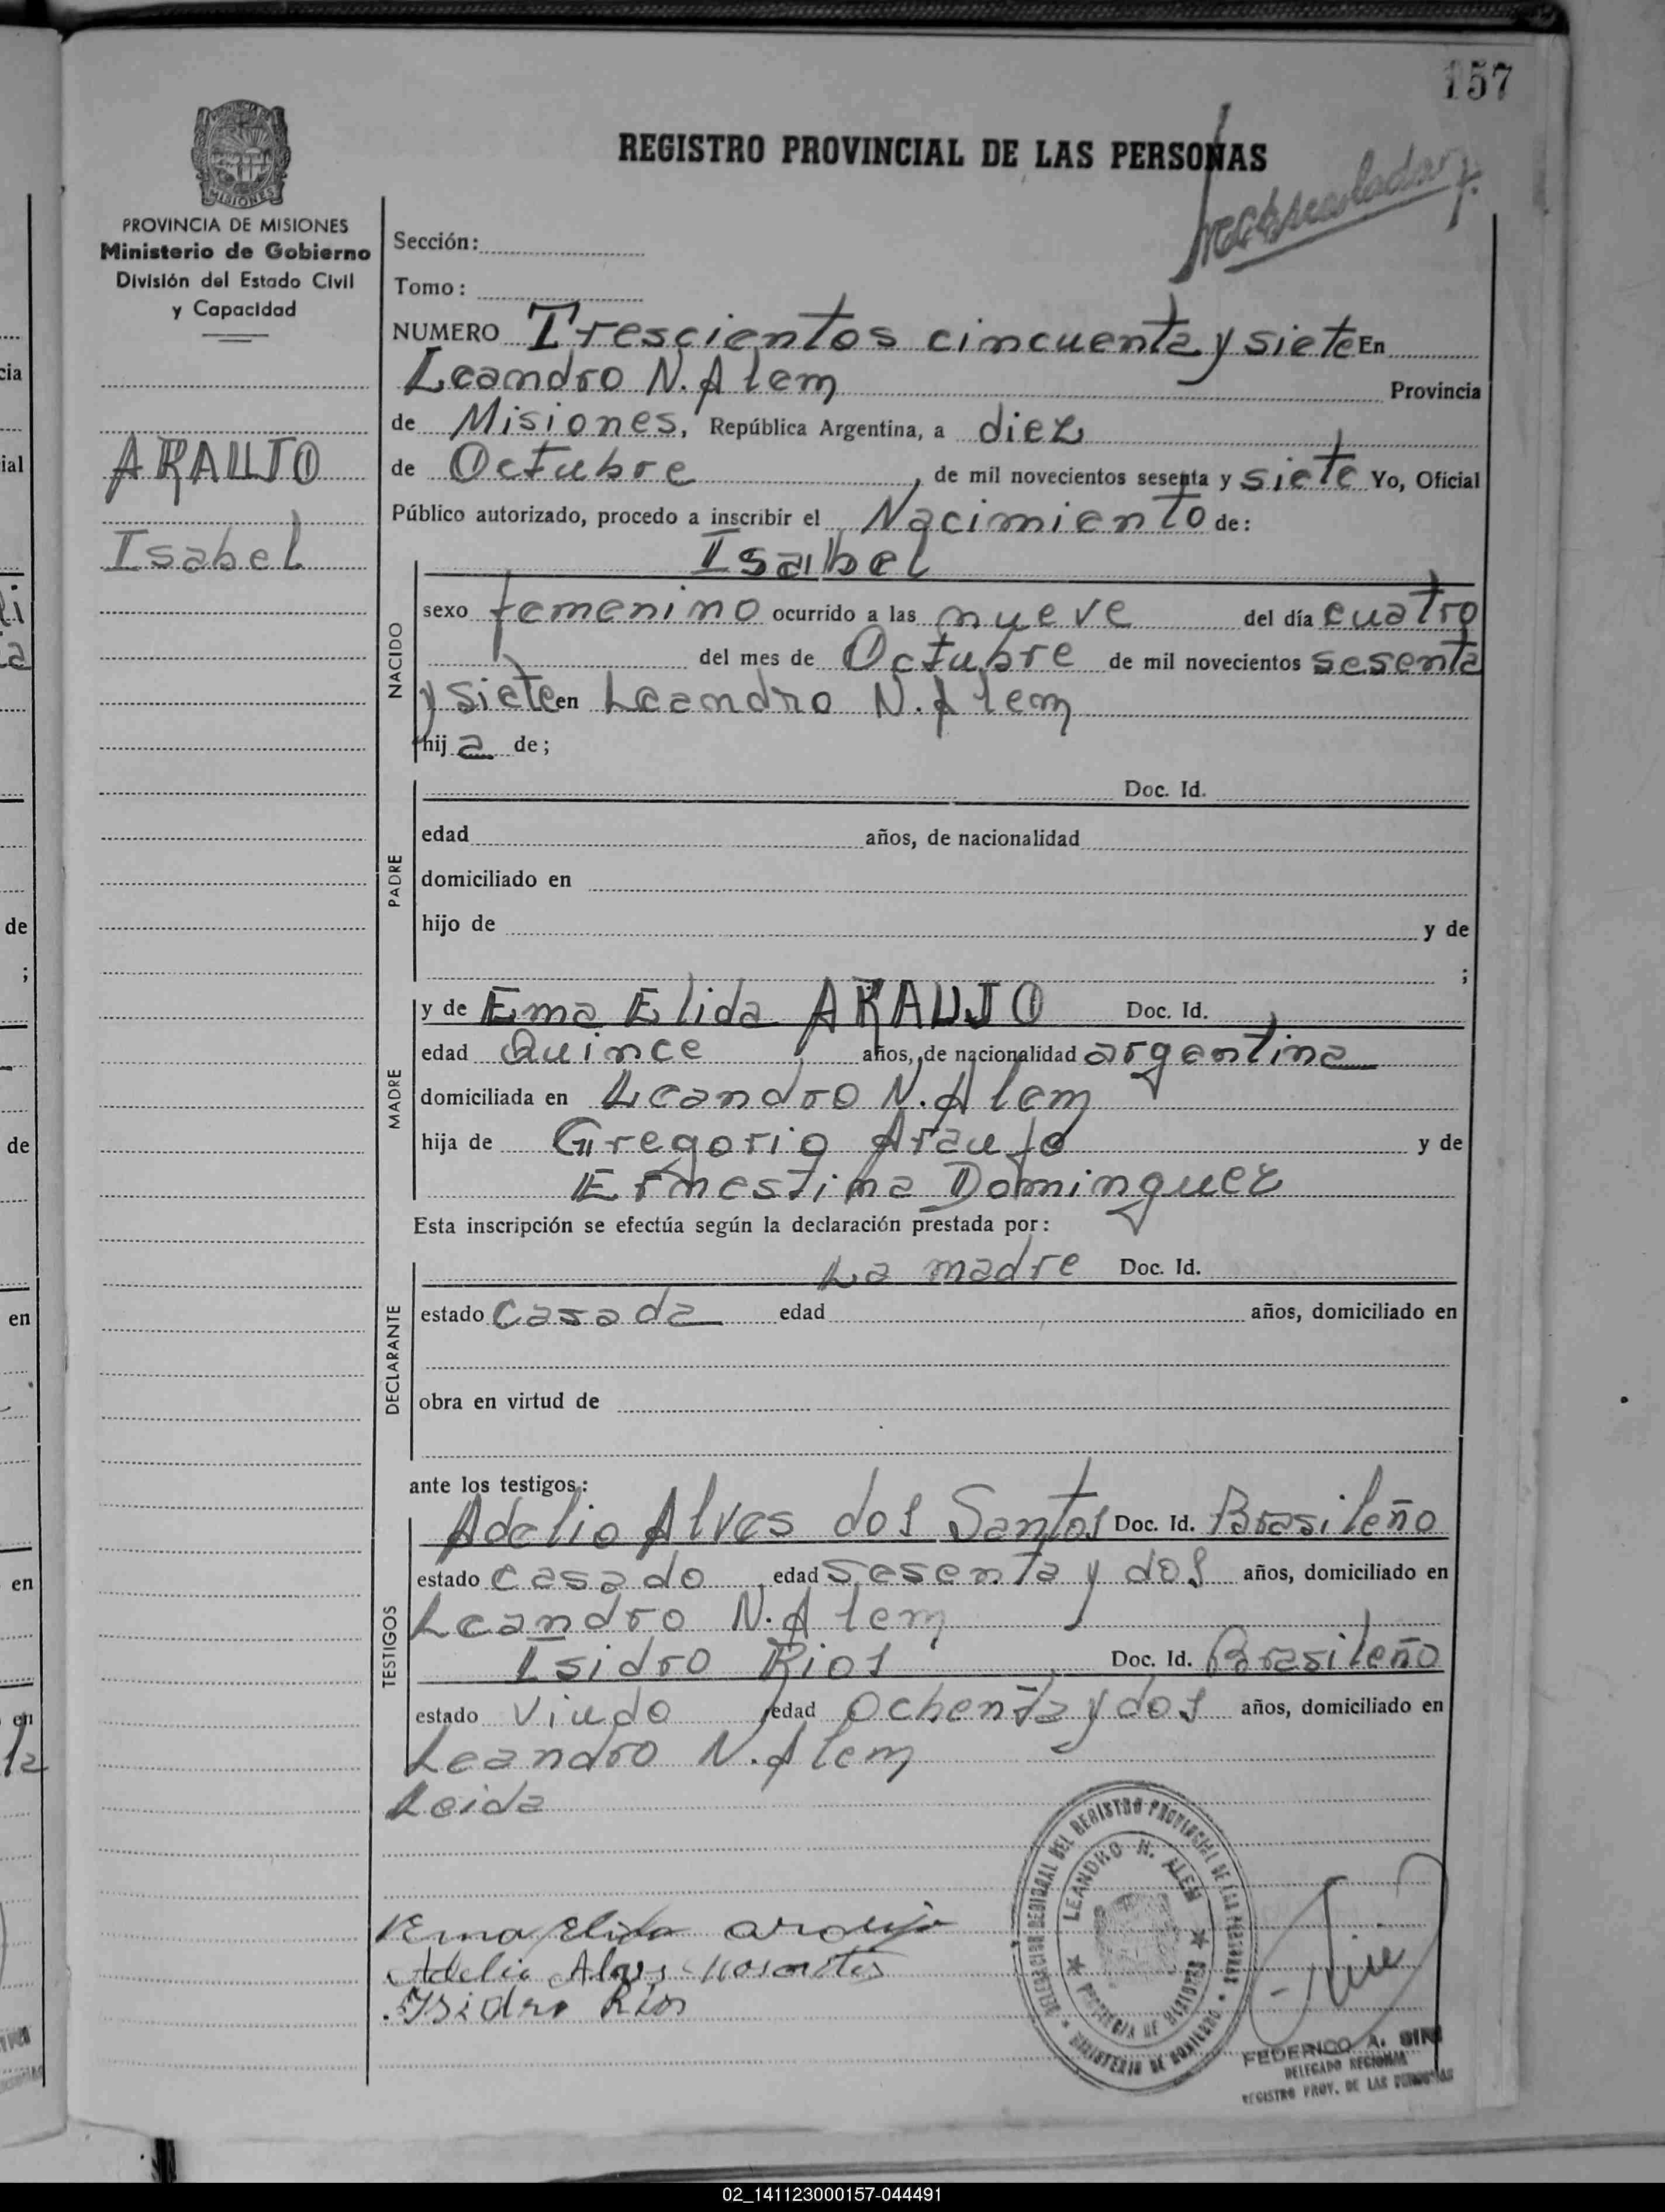 157
REGISTRO PROVINCIAL DE LAS PERSONAS
MISIONES
PROVINCIA DE MISIONES
Ministerio de Gobierno
División del Estado Civil
y Capacidad
ARAUJO
Isabel
Sección:
Tomo:
NUMERO Trescientos cincuenta y siete En
Leandro N. Alem Provincia
de Misiones, República Argentina, a diez
de Octubre, de mil novecientos sesenta y siete Yo, Oficial
Público autorizado, procedo a inscribir el Nacimiento de:
Isabel
NACIDO
sexo femenino ocurrido a las nueve del día cuatro
del mes de Octubre de mil novecientos sesenta
y siete en Leandro N. Alem
hij a de;
PADRE
Doc. Id.
edad años, de nacionalidad
domiciliado en
hijo de y de
;
MADRE
y de Ema Elida ARAUJO Doc. Id.
edad Quince años, de nacionalidad argentina
domiciliada en Leandro N. Alem
hija de Gregorio Araujo y de
Ernestina Dominguez
Esta inscripción se efectúa según la declaración prestada por:
DECLARANTE
La madre Doc. Id.
estado casada edad años, domiciliado en
obra en virtud de
ante los testigos:
TESTIGOS
Adelio Alves dos Santos Doc. Id. Brasileño
estado casado, edad sesenta y dos años, domiciliado en
Leandro N. Alem
Isidro Rios Doc. Id. Brasileño
estado Viudo, edad ochenta y dos años, domiciliado en
Leandro N. Alem
Leida
Ema Elida Araujo
Adelio Alves
Isidro Rios
DELEGACION REGIONAL DEL REGISTRO PROVINCIAL DE LAS PERSONAS
MINISTERIO DE GOBIERNO
LEANDRO N. ALEM
PROVINCIA DE MISIONES
FEDERICO A. SIRI
DELEGADO REGIONAL
REGISTRO PROV. DE LAS PERSONAS
02_141123000157-044491